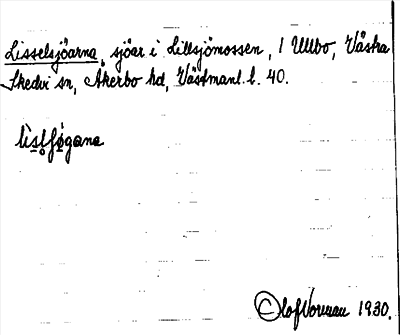 Lisselsjöarna, sjöar i Lillsjömossen, 1 Ullbo, Västra
Skedvi sn, Åkerbo hd, Västmanl. l. 40.
Olof 1930.